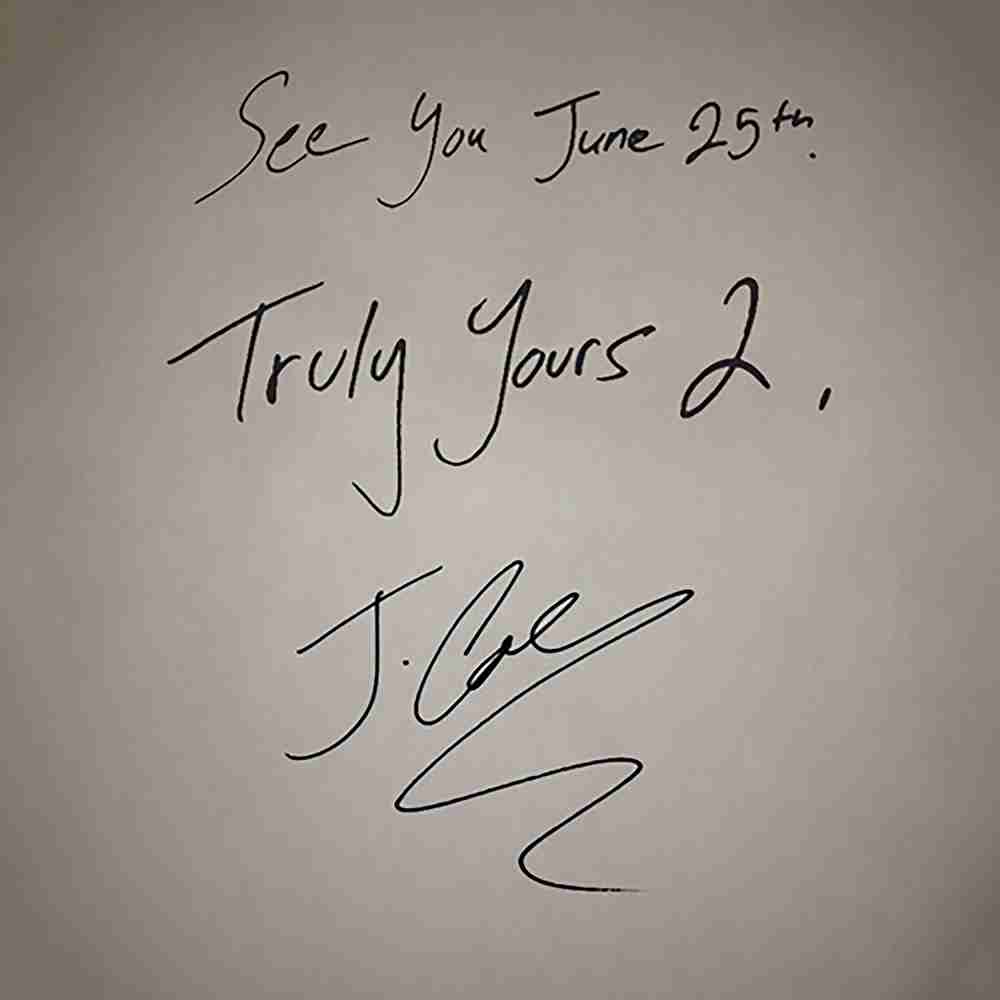 See you June 25th.
Truly Yours 2.
J. Cole